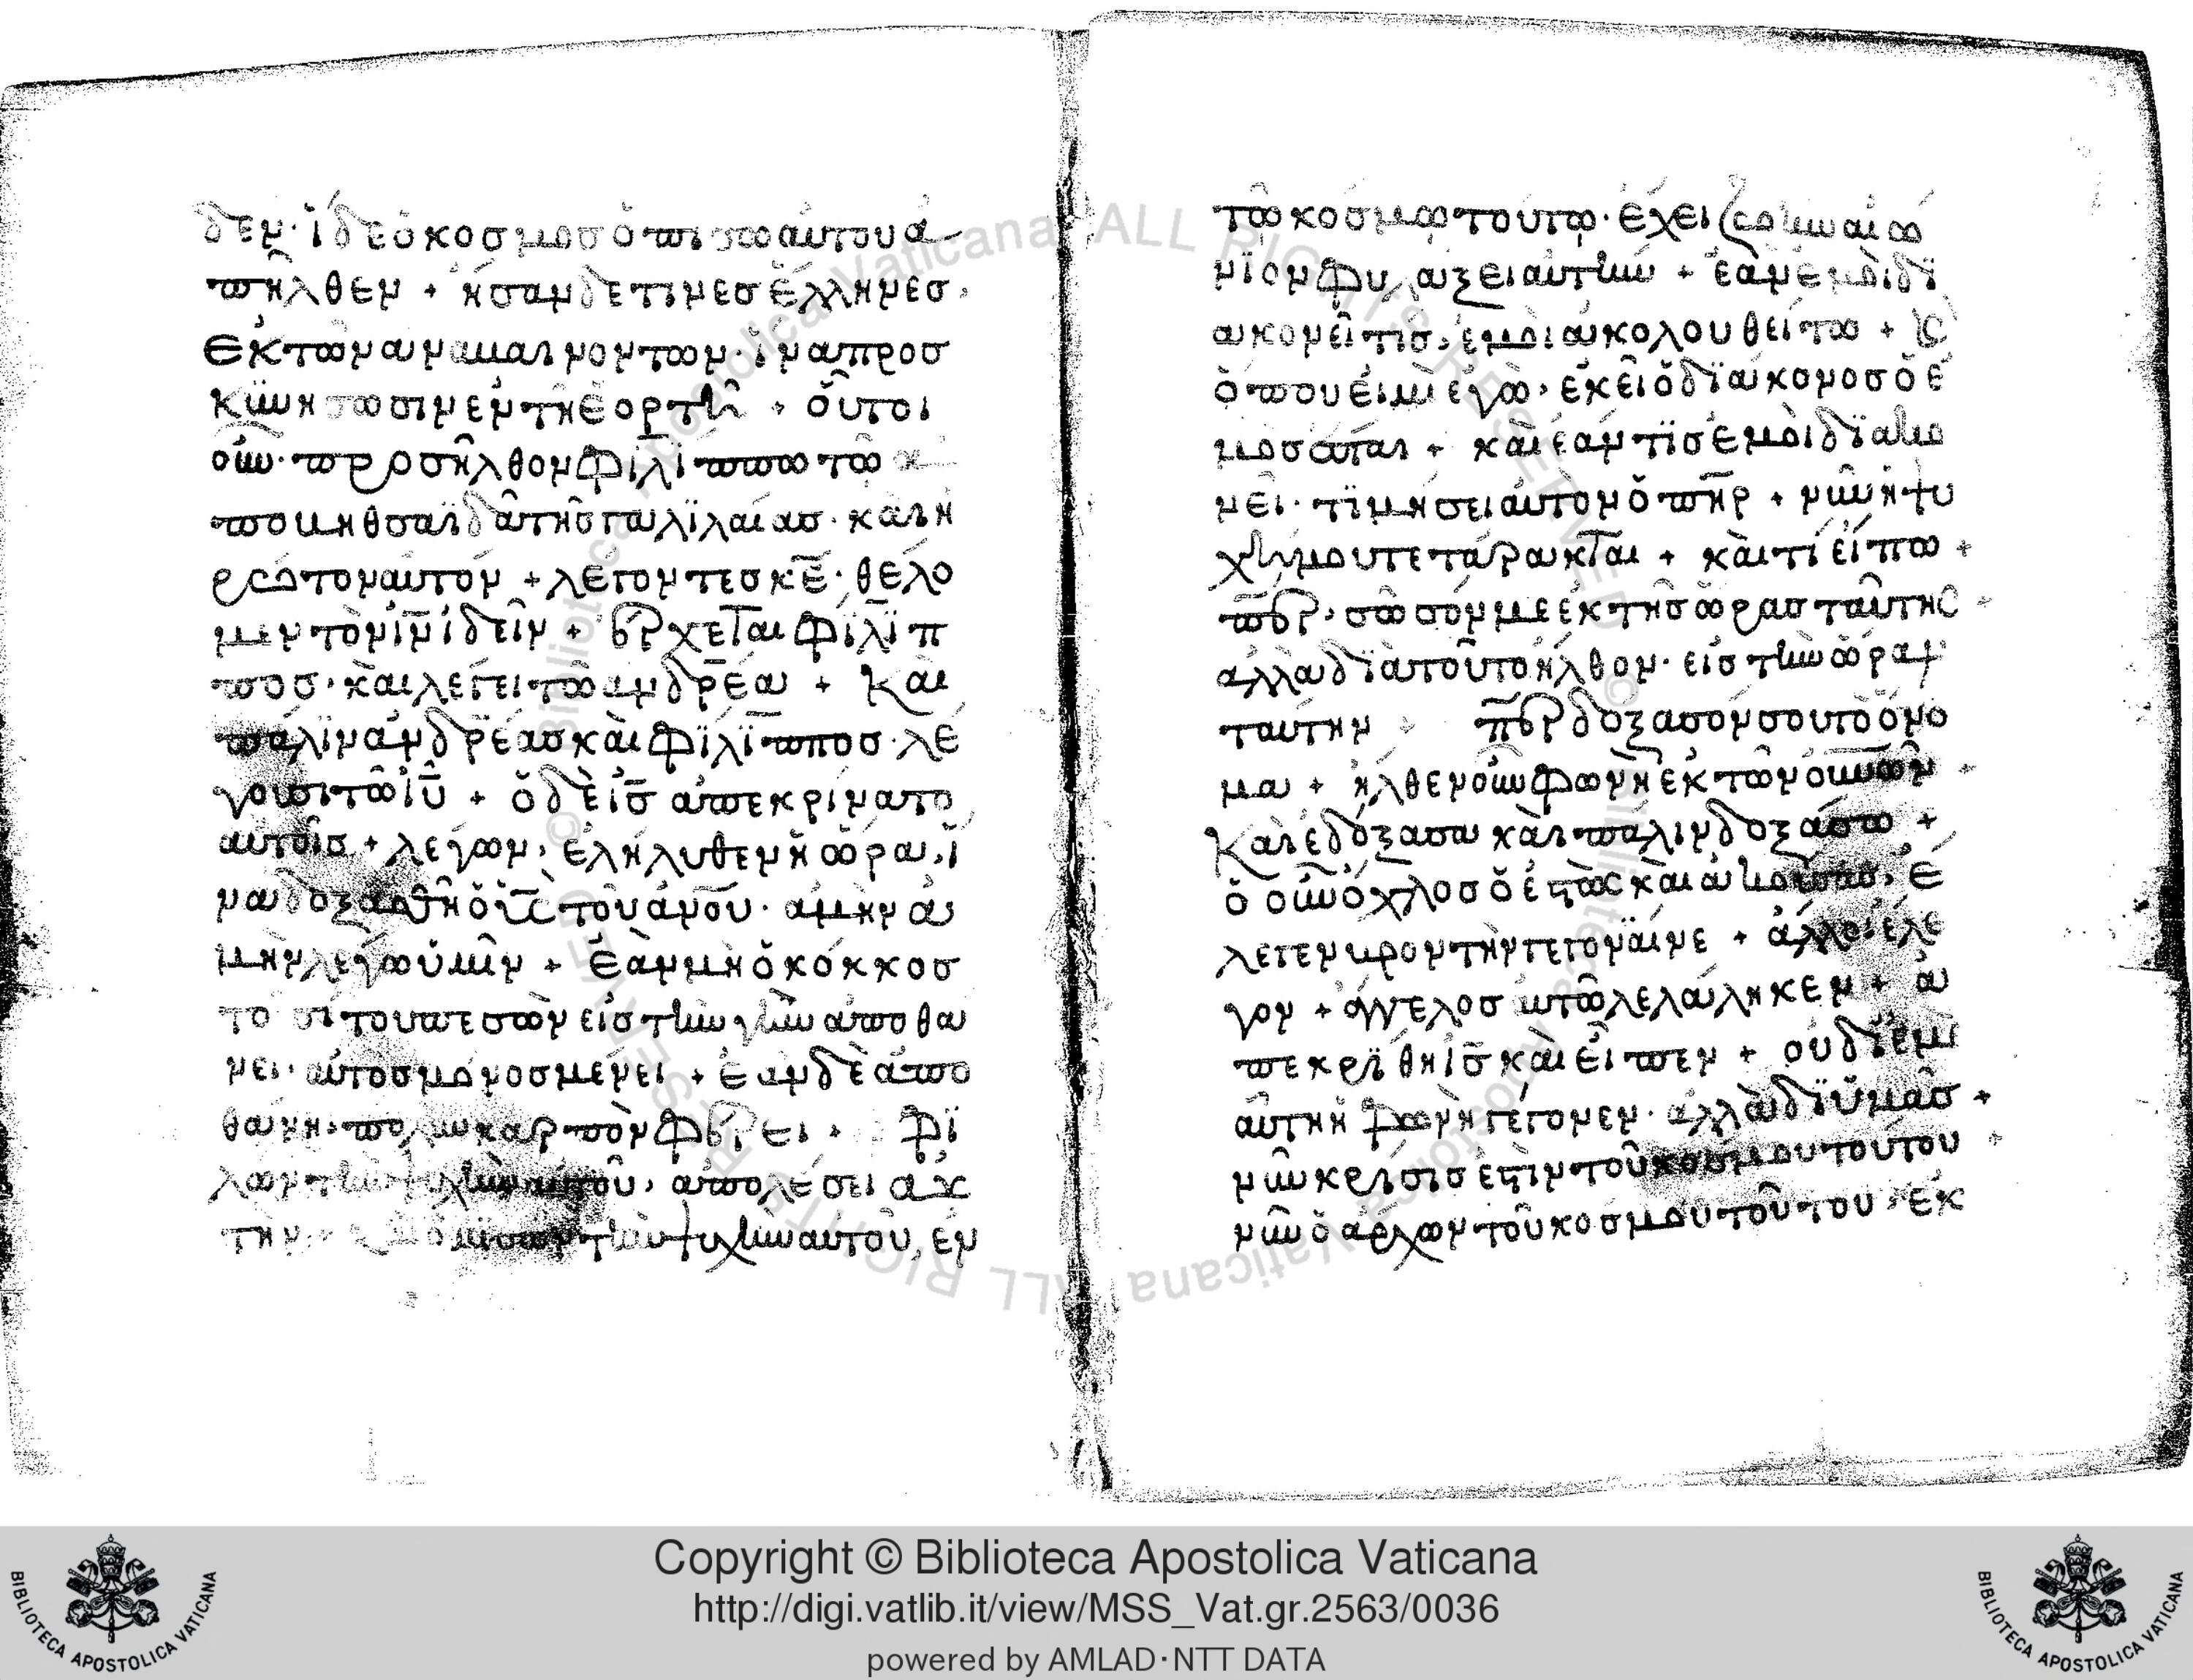 δεν· ἴδε ὁ κοσμοσ ὀπισω αὐτου ἀ
πῆλθεν + ἠσαν δε τινεσ ἕλληνεσ,
ἐκ τῶν ἀναβαινοντων· ἵνα προσ
κϋνησωσιν ἐν τῆ ἑορτῆ + οὗτοι
οὖν· προσῆλθον φιλίππω τῶ
ἀπο βηθσαϊδὰ τῆσ γαλϊλαίασ· και ἠ
ρώτον αυτον + λεγοντεσ κ̅ε̅· θέλο
μεν τὸν ι̅ν̅ ἰδεῖν + ἔρχεται φίλϊπ
ποσ· καὶ λέγει τῶ ανδρέα + Και
παλϊν ἀνδρέασ καὶ φϊλϊπποσ· λέ
γουσι τῶ ι̅υ̅ + ὁ δὲ ι̅σ̅ ἀπεκρινατο
αυτοῖσ + λέγων, ἐλήλυθεν ἡ ὥρα, ἵ
να δοξασθῆ ὁ υ̅ς̅ τοῦ α̅ν̅ο̅υ̅· ἀμην ἀ
μὴν λέγω ὑμῖν + ἐὰν μὴ ὁ κόκκοσ
το σιτου πεσὼν εἰσ τὴν γῆν ἀποθα
νει· αὐτὸσ μόνοσ μένει + ἐαν δὲ ἀπο
θάνη· πολυν καρπὸν φέρει + Φϊ
λων τὴν ψυχὴν αὐτοῦ, ἀπολέσει αὐ
την· ὁ μισων τὴν ψυχὴν αὐτοῦ, ἐν
τῶ κόσμω τουτω· ἔχει ζωὴν αἰω
νϊον φυλαξει αὐτὴν + ἐὰν ἐμοὶ δϊ
ακονεῖ τισ, ἐμοὶ ἀκολουθείτω + κ̀
ὅπου εἰμὶ ἐγὼ, ἐκεῖ ὁ δϊάκονοσ ὁ ἐ
μοσ ἐσται + καὶ ἐάν τϊσ ἐμοὶ δϊακο
νεῖ· τϊμήσει αὐτὸν ὁ π̅η̅ρ̅ + νῦν ἡ ψυ
χή μου τετάρακται + καὶ τί εἴπω +
π̅ε̅ρ̅, σῶσόν με ἐκ τῆσ ὥρασ ταύτησ
ἀλλὰ δϊὰ τοῦτο ἦλθον· εἰσ τὴν ὥραν
ταύτην π̅ε̅ρ̅ δοξασόν σου τὸ ὄνο
μα + ἦλθεν οὖν φωνὴ ἐκ τῶν ο̅υ̅ν̅ω̅ν̅ +
Καὶ ἐδόξασα καὶ παλιν δοξάσω +
ὁ οὖν ὄχλοσ ὁ ἑστὼς καὶ ἀκούσασ, ἔ
λεγεν βροντὴν γεγονέναι + ἄλλοι ἔλε
γον + ἄγγελοσ αυτῶ λελάληκεν + ἀ
πεκρϊθη ι̅σ̅ καὶ εἶπεν + οὐ δϊ' ἐμὲ
αὕτη ἡ φωνὴ γέγονεν· ἀλλὰ δϊ' ὑμᾶσ +
νῦν κρίσισ ἐστὶν τοῦ κόσμου τούτου
νῦν ὁ ἄρχων τοῦ κοσμου τούτου, ἐκ
Copyright © Biblioteca Apostolica Vaticana
http://digi.vatlib.it/view/MSS_Vat.gr.2563/0036
powered by AMLAD·NTT DATA
BIBLIOTECA APOSTOLICA VATICANA
BIBLIOTECA APOSTOLICA VATICANA